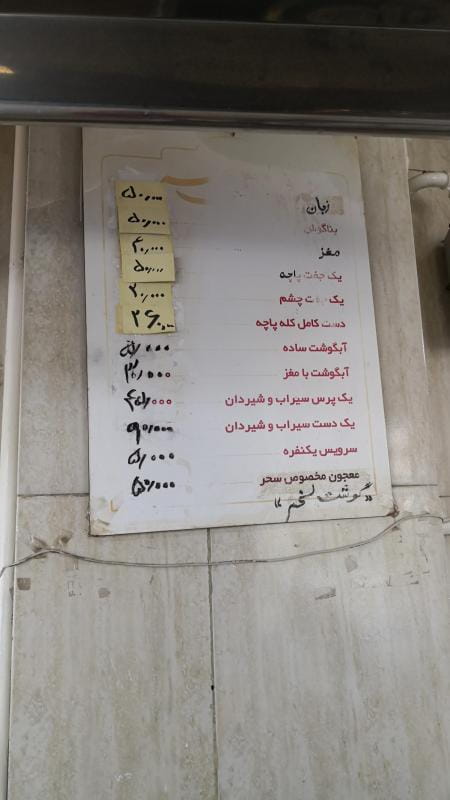 زبان ۵۰,۰۰۰
بناگوش ۵۰,۰۰۰
مغز ۴۰,۰۰۰
یک جفت پاچه ۵۰,۰۰۰
یک جفت چشم ۲۰,۰۰۰
دست کامل کله پاچه ۲۶۰,۰۰۰
آبگوشت ساده
آبگوشت با مغز
یک پرس سیراب و شیردان ۴۵/۰۰۰
یک دست سیراب و شیردان ۹۰/۰۰۰
سرویس یکنفره ۵/۰۰۰
معجون مخصوص سحر
"گوشت لخم"